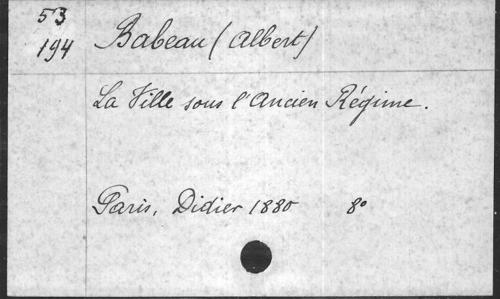 53
194
Babeau (Albert)
La Ville sous l'Ancien Régime.
Paris, Didier 1880 8º